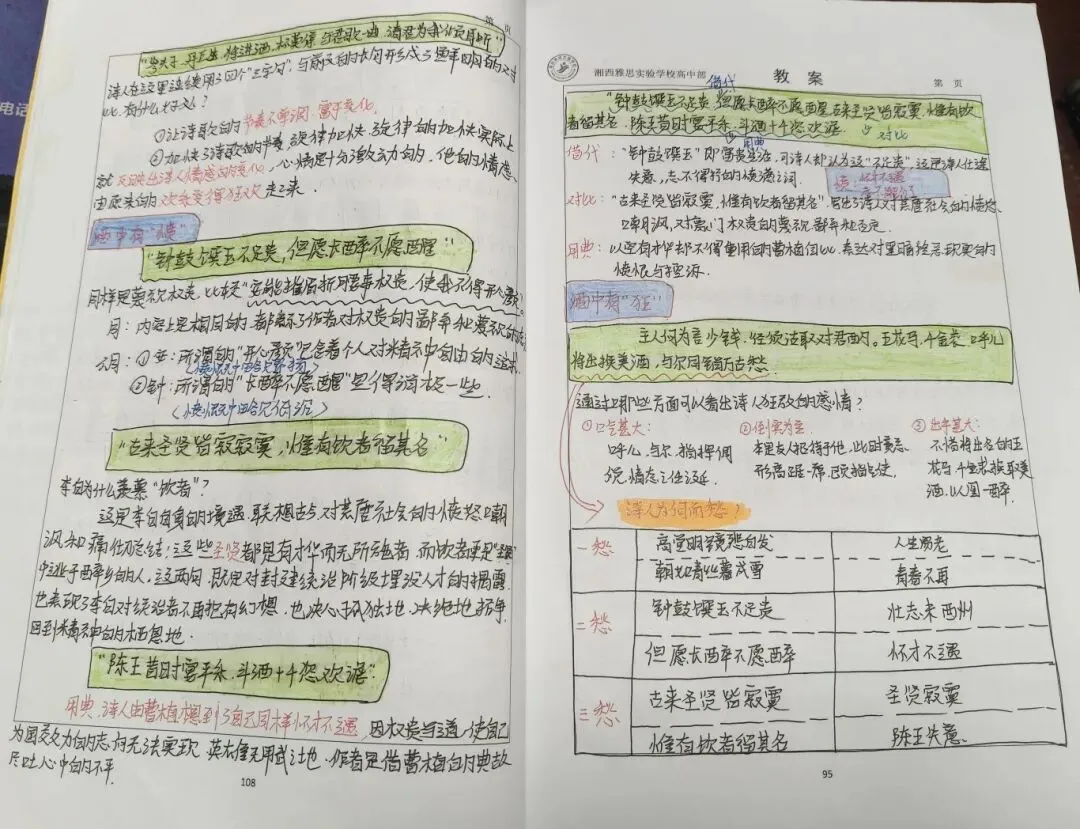 电话
第 页
"岑夫子,丹丘生,将进酒,杯莫停,与君歌一曲,请君为我倾耳听"
诗人在这里连续用了四个"三字句",与前文的长句形成了鲜明的对
比,有什么好处?
①让诗歌的节奏不单调,富于变化。
②加快了诗歌的节奏,旋律加快,旋律的加快实际上
就反映出诗人情感的变化,心情是十分激动的,他的情感
由原来的欢乐变得狂欢起来。
酒中有"愤"
"钟鼓馔玉不足贵,但愿长醉不愿醒"
同样是蔑视权贵,比较"安能摧眉折腰事权贵,使我不得开心颜"
同:内容上是相同的,都表示了作者对权贵的鄙弃和蔑视的
不同:①安:所谓的"开心颜"包含着个人对精神自由的追求
(愤恨不中略带昂扬)
②钟:所谓的"长醉不愿醒"显得消极一些
(愤恨中略见低沉)
"古来圣贤皆寂寞,惟有饮者留其名"
李白为什么羡慕"饮者"?
这是李白自身的境遇,联想古与对其歷社会的愤怒嘲
讽和痛恨总结;这些圣贤都是有才华而无所施者,而饮者更是
中逃于醉乡的人,这两句,既是对封建统治阶级埋没人才的揭露,
也表现了李白对统治者不再抱有幻想,也决心孤独地、决绝地抗争,
回到精神的栖息地.
"陈王昔时宴平乐,斗酒十千恣欢谑"
用典:诗人由曹植想到了自己同样怀才不遇,因权贵当道,使自己
为国效力的志向无法实现,英雄无用武之地.作者是借曹植的典故
尽吐心中的不平
108
湘西雅思实验学校高中部 教案 第 页
借代
"钟鼓馔玉不足贵,但愿长醉不愿醒,古来圣贤皆寂寞,惟有饮
者留其名。陈王昔时宴平乐,斗酒十千恣欢谑. 对比
用典
借代:"钟鼓馔玉"即富贵生活,可诗人却认为这"不足贵",这是诗人仕途
失意,志不得抒的愤激之词.
愤:怀才不遇
对比:"古来圣贤皆寂寞,惟有饮者留其名"写出诗人对其歷社会的愤怒
嘲讽,对豪门权贵的蔑视鄙弃和否定.
用典:以空有才华却不得重用的曹植自比,表达对黑暗现实的
愤恨与控诉.
酒中有"狂"
主人何为言少钱,径须沽取对君酌.五花马,千金裘,呼儿
将出换美酒,与尔同销万古愁.
通过哪些方面可以看出诗人狂放的感情?
①口气甚大: ②倒宾为主: ③出手甚大:
呼儿,与尔,指挥倜 本是友人招待于他,此时竟 不惜将出名的五
傥,情态之任诞. 形高踞一席,颐指气使. 花马、千金裘换取美
酒,以图一醉.
诗人为何而愁?
一愁 高堂明镜悲白发 人生易老
朝如青丝暮成雪 青春不再
二愁 钟鼓馔玉不足贵 壮志未酬
但愿长醉不愿醉 怀才不遇
三愁 古来圣贤皆寂寞 圣贤寂寞
惟有饮者留其名 陈王失意.
95